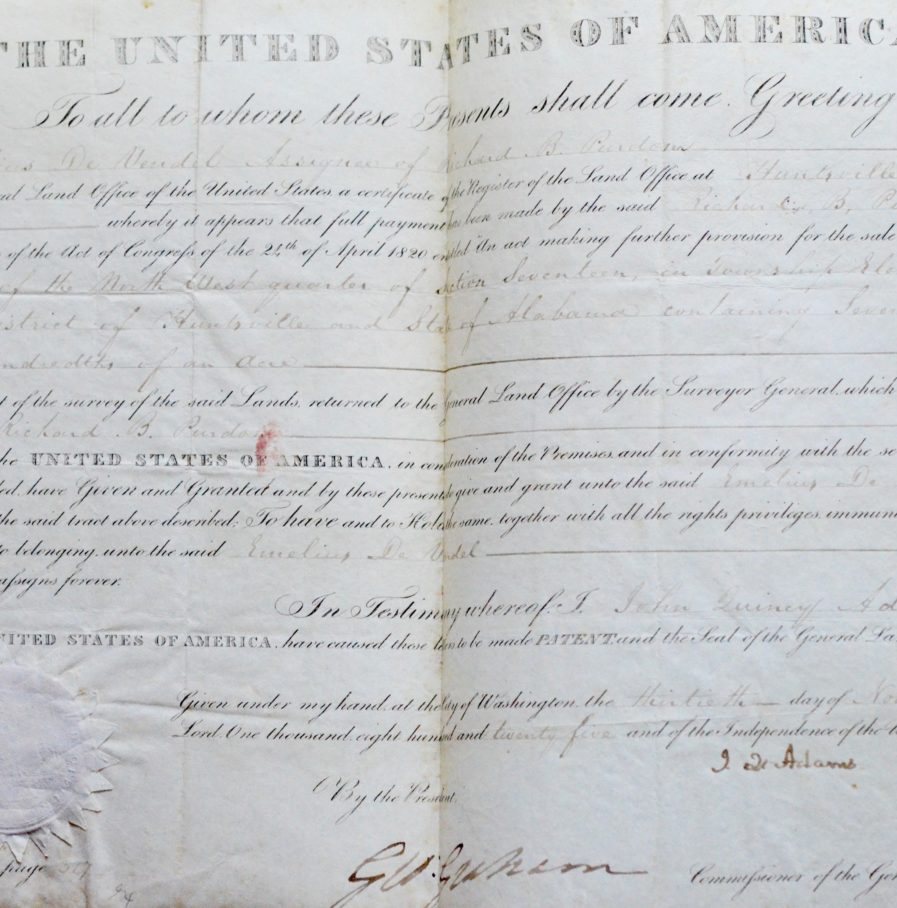 THE UNITED STATES OF AMERICA
To all to whom these Presents shall come, Greeting
De Vendel Assignee of Richard B. Purdom
Land Office of the United States, a certificate of the Register of the Land Office at Huntsville
whereby it appears that full payment has been made by the said Richard B. P
of the Act of Congress of the 24th of April 1820 entitled "An act making further provision for the sale
of the North West quarter of Section Seventeen, in Township Ele
istrict of Huntsville and State of Alabama containing Seven
undredths of an acre
t of the survey of the said Lands, returned to the General Land Office by the Surveyor General, which
Richard B. Purdom
he UNITED STATES OF AMERICA, in consideration of the Premises, and in conformity with the se
ded, have Given and Granted and by these presents do give and grant unto the said Emelius De
the said tract above described; To have and to Hold the same, together with all the rights, privileges, immun
to belonging, unto the said Emelius De Vendel
assigns forever.
In Testimony whereof, I, John Quincy Ad
UNITED STATES OF AMERICA, have caused these Letters to be made PATENT, and the Seal of the General La
Given under my hand, at the City of Washington, the thirtieth day of No
Lord One thousand eight hundred and twenty five and of the Independence of the U
J. Q. Adams
By the President,
G W. Graham
page
Commissioner of the Gen